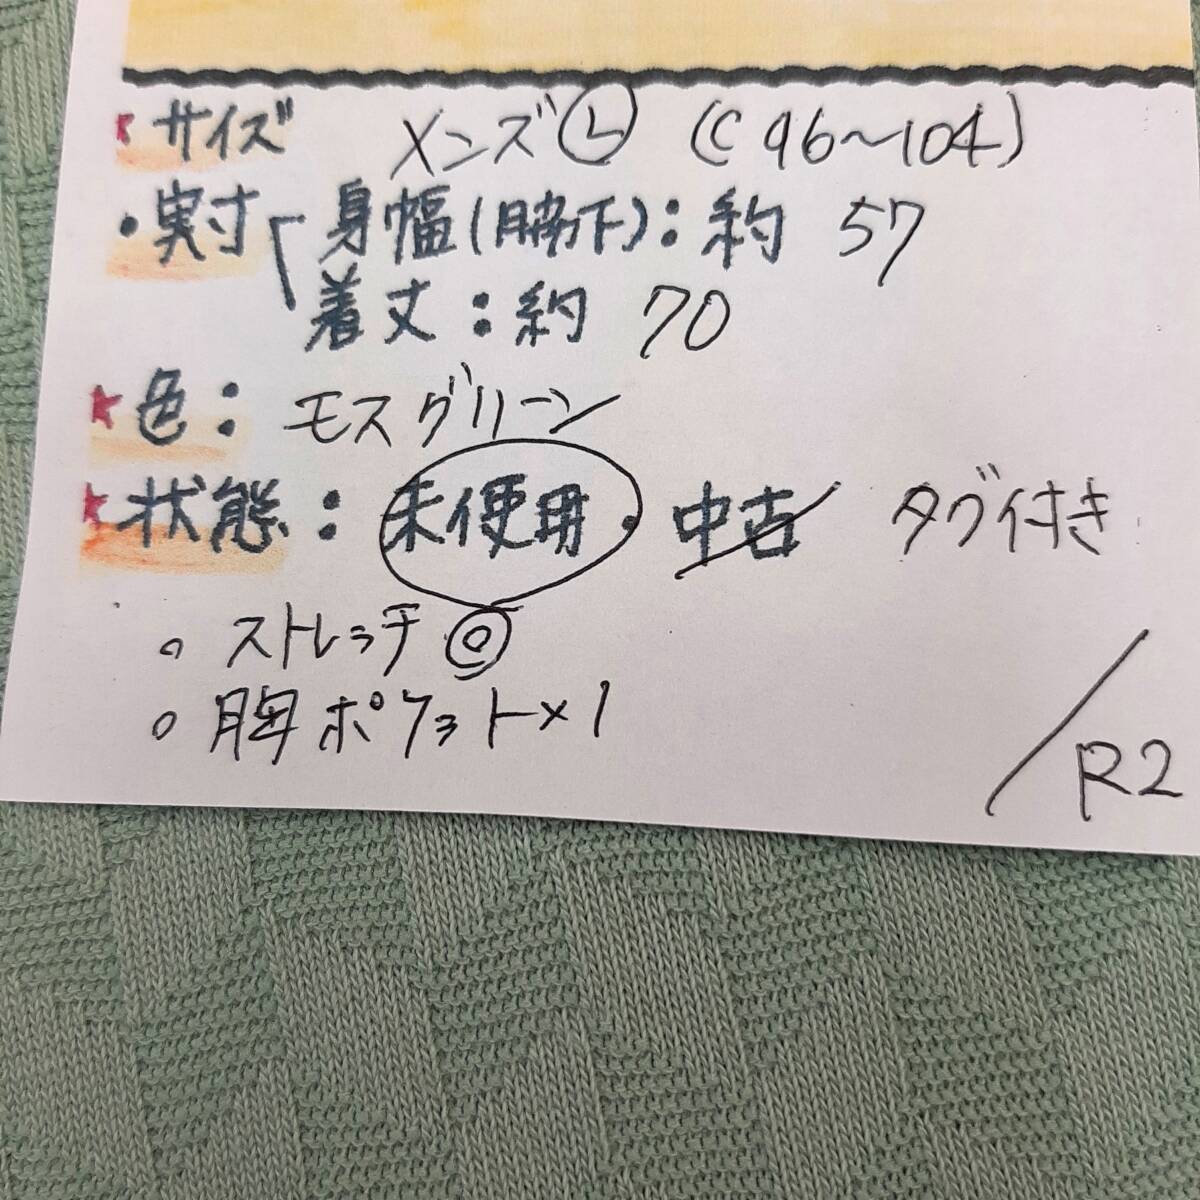 ★サイズ メンズⓁ (C96〜104)
・実寸「身幅(脇下):約 57
着丈:約 70
★色: モスグリーン
★状態: 未使用・中古 タグ付き
○ ストレッチ◎
○ 胸ポケット×1
/R2